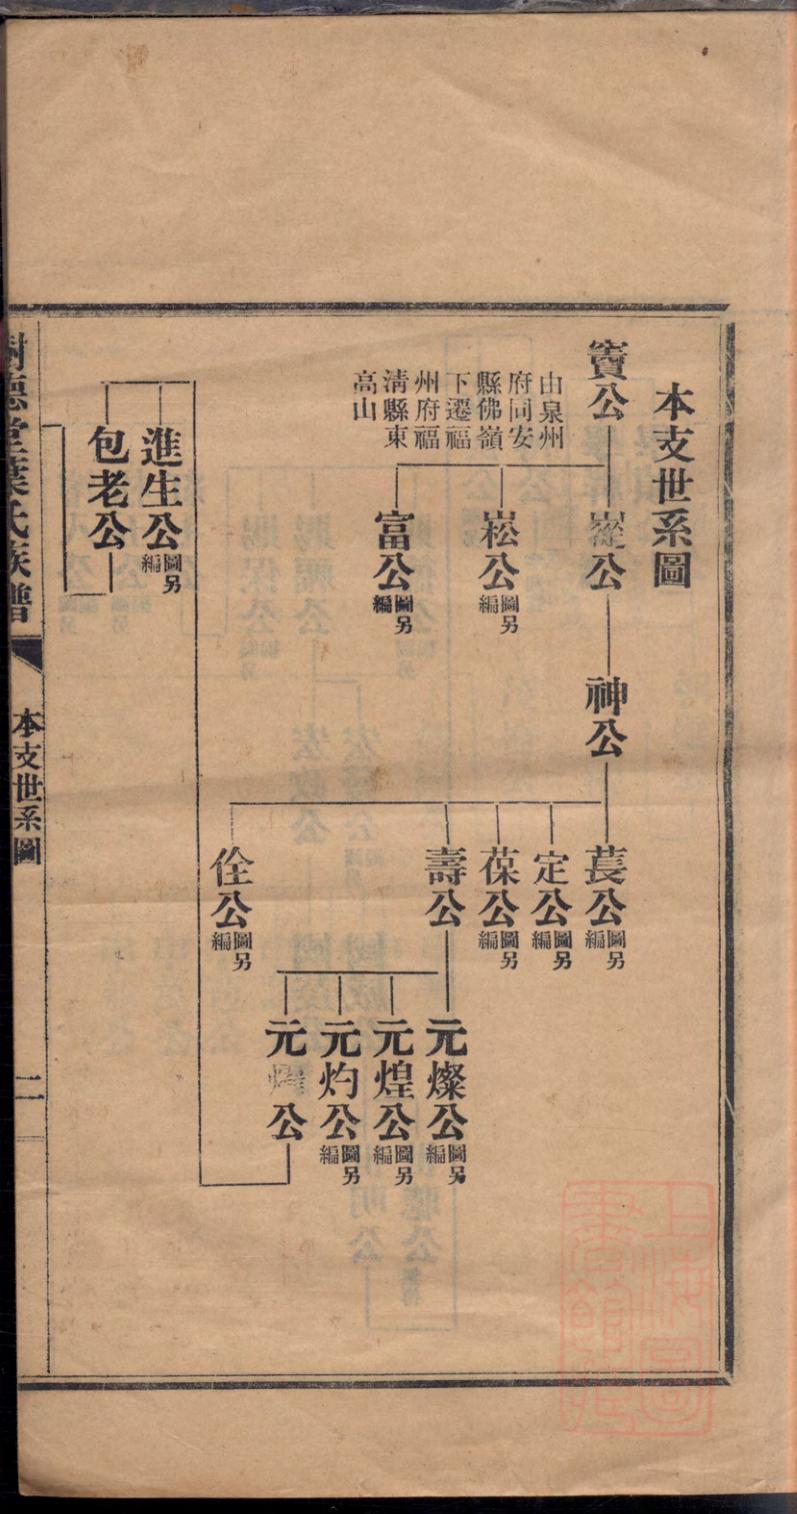 本支世系圖
寳公
由泉州
府同安
縣佛嶺
下遷福
州府福
清縣東
高山
崧公圖另編
富公圖另編
神公
萇公圖另編
定公圖另編
葆公圖另編
壽公
佺公圖另編
元燦公圖另編
元煌公圖另編
元灼公圖另編
元 公
進生公圖另編
包老公
樹德堂葉氏族譜
本支世系圖
二
上海圖書館藏